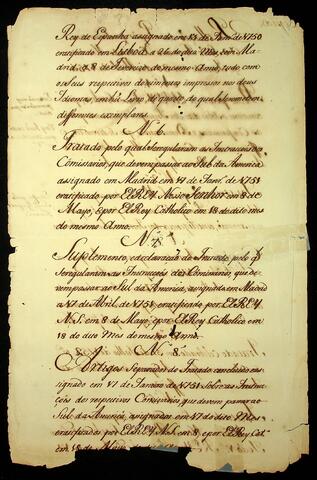 Rey de Espanha assignado em 13 de Janr.º de 1750
eratificado em Lisboa a 26 do dito Mes, e em Ma-
drid a 8 de Fevereiro do mesmo Anno, tudo com
os seus respectivos
Idiomas, em hũ Livro de quarto do qual se
differentes exemplares.
N. 6.
Tratado pelo qual se regularão as Instrucções dos
Comissarios, que devem passar ao Sul da America
assignado em Madrid em 17 de Janr.º de 1751
eratificado por ElREY Nosso Senhor em 8 de
Mayo, e por El Rey Catholico em 18 do dito mes
do mesmo Anno.
N. 7.
Suplemento, e declaração do Tratado, pelo q
se regularão as Instrucções dos Comissarios, que de-
vem passar ao Sul da America, assignada em Madrid
a 17 de Abril de 1751, eratificado por ElREY
N. S. em 8 de Mayo, e por El Rey Catholico em
18 do dito Mes do mesmo Anno.
N. 8.
Artigos Separados do Tratado concluido e as-
signado em 17 de Janeiro de 1751 sobre as Instruc-
ções dos respectivos Comissarios que devem passar ao
Sul da America, assignados em 17 do dito Mes
eratificados por ElREY N. S. em 8 e por El Rey Cat.
em 18 de Mayo